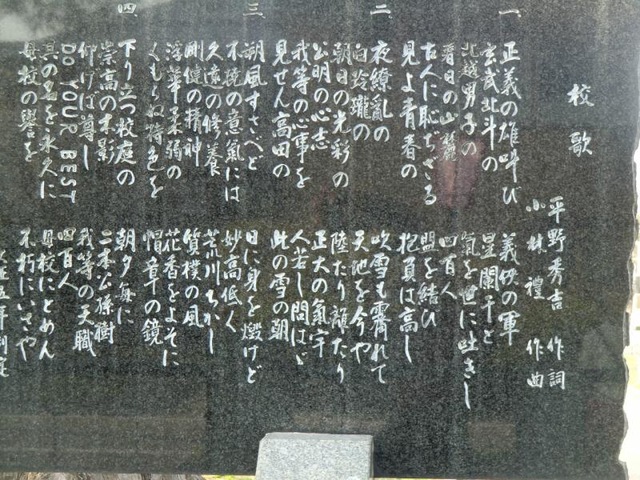 校歌
平野秀吉 作詞
小林禮 作曲
一、正義の雄叫び 義侠の軍
玄武北斗の 星闌干と
北越男子の 氣を世に吐きし
春日の山麓 四百人
古人に恥ぢざる 盟を結び
見よ青春の 抱負は高し
二、夜繚亂の 吹雪も霽れて
白玲瓏の 天地を今や
朝日の光彩の
公明の心志 正大の氣宇
我等の心事を 人若し問はゞ
見せん高田の 此の雪の朝
三、朔風すさべど 日に身を燬けど
不撓の意氣には 妙高低く
久遠の修養 荒川ちかし
剛健の精神 質樸の風
浮華柔弱の 花香をよそに
くもらぬ特色を 帽章の鏡
四、下り立つ校庭の 朝夕毎に
崇高の木影 二本公孫樹
仰げば尊し 我等の天職
DO YOUR BEST 四百人
其の名を永久に 母校にとめん
母校の譽を 不朽にいざや